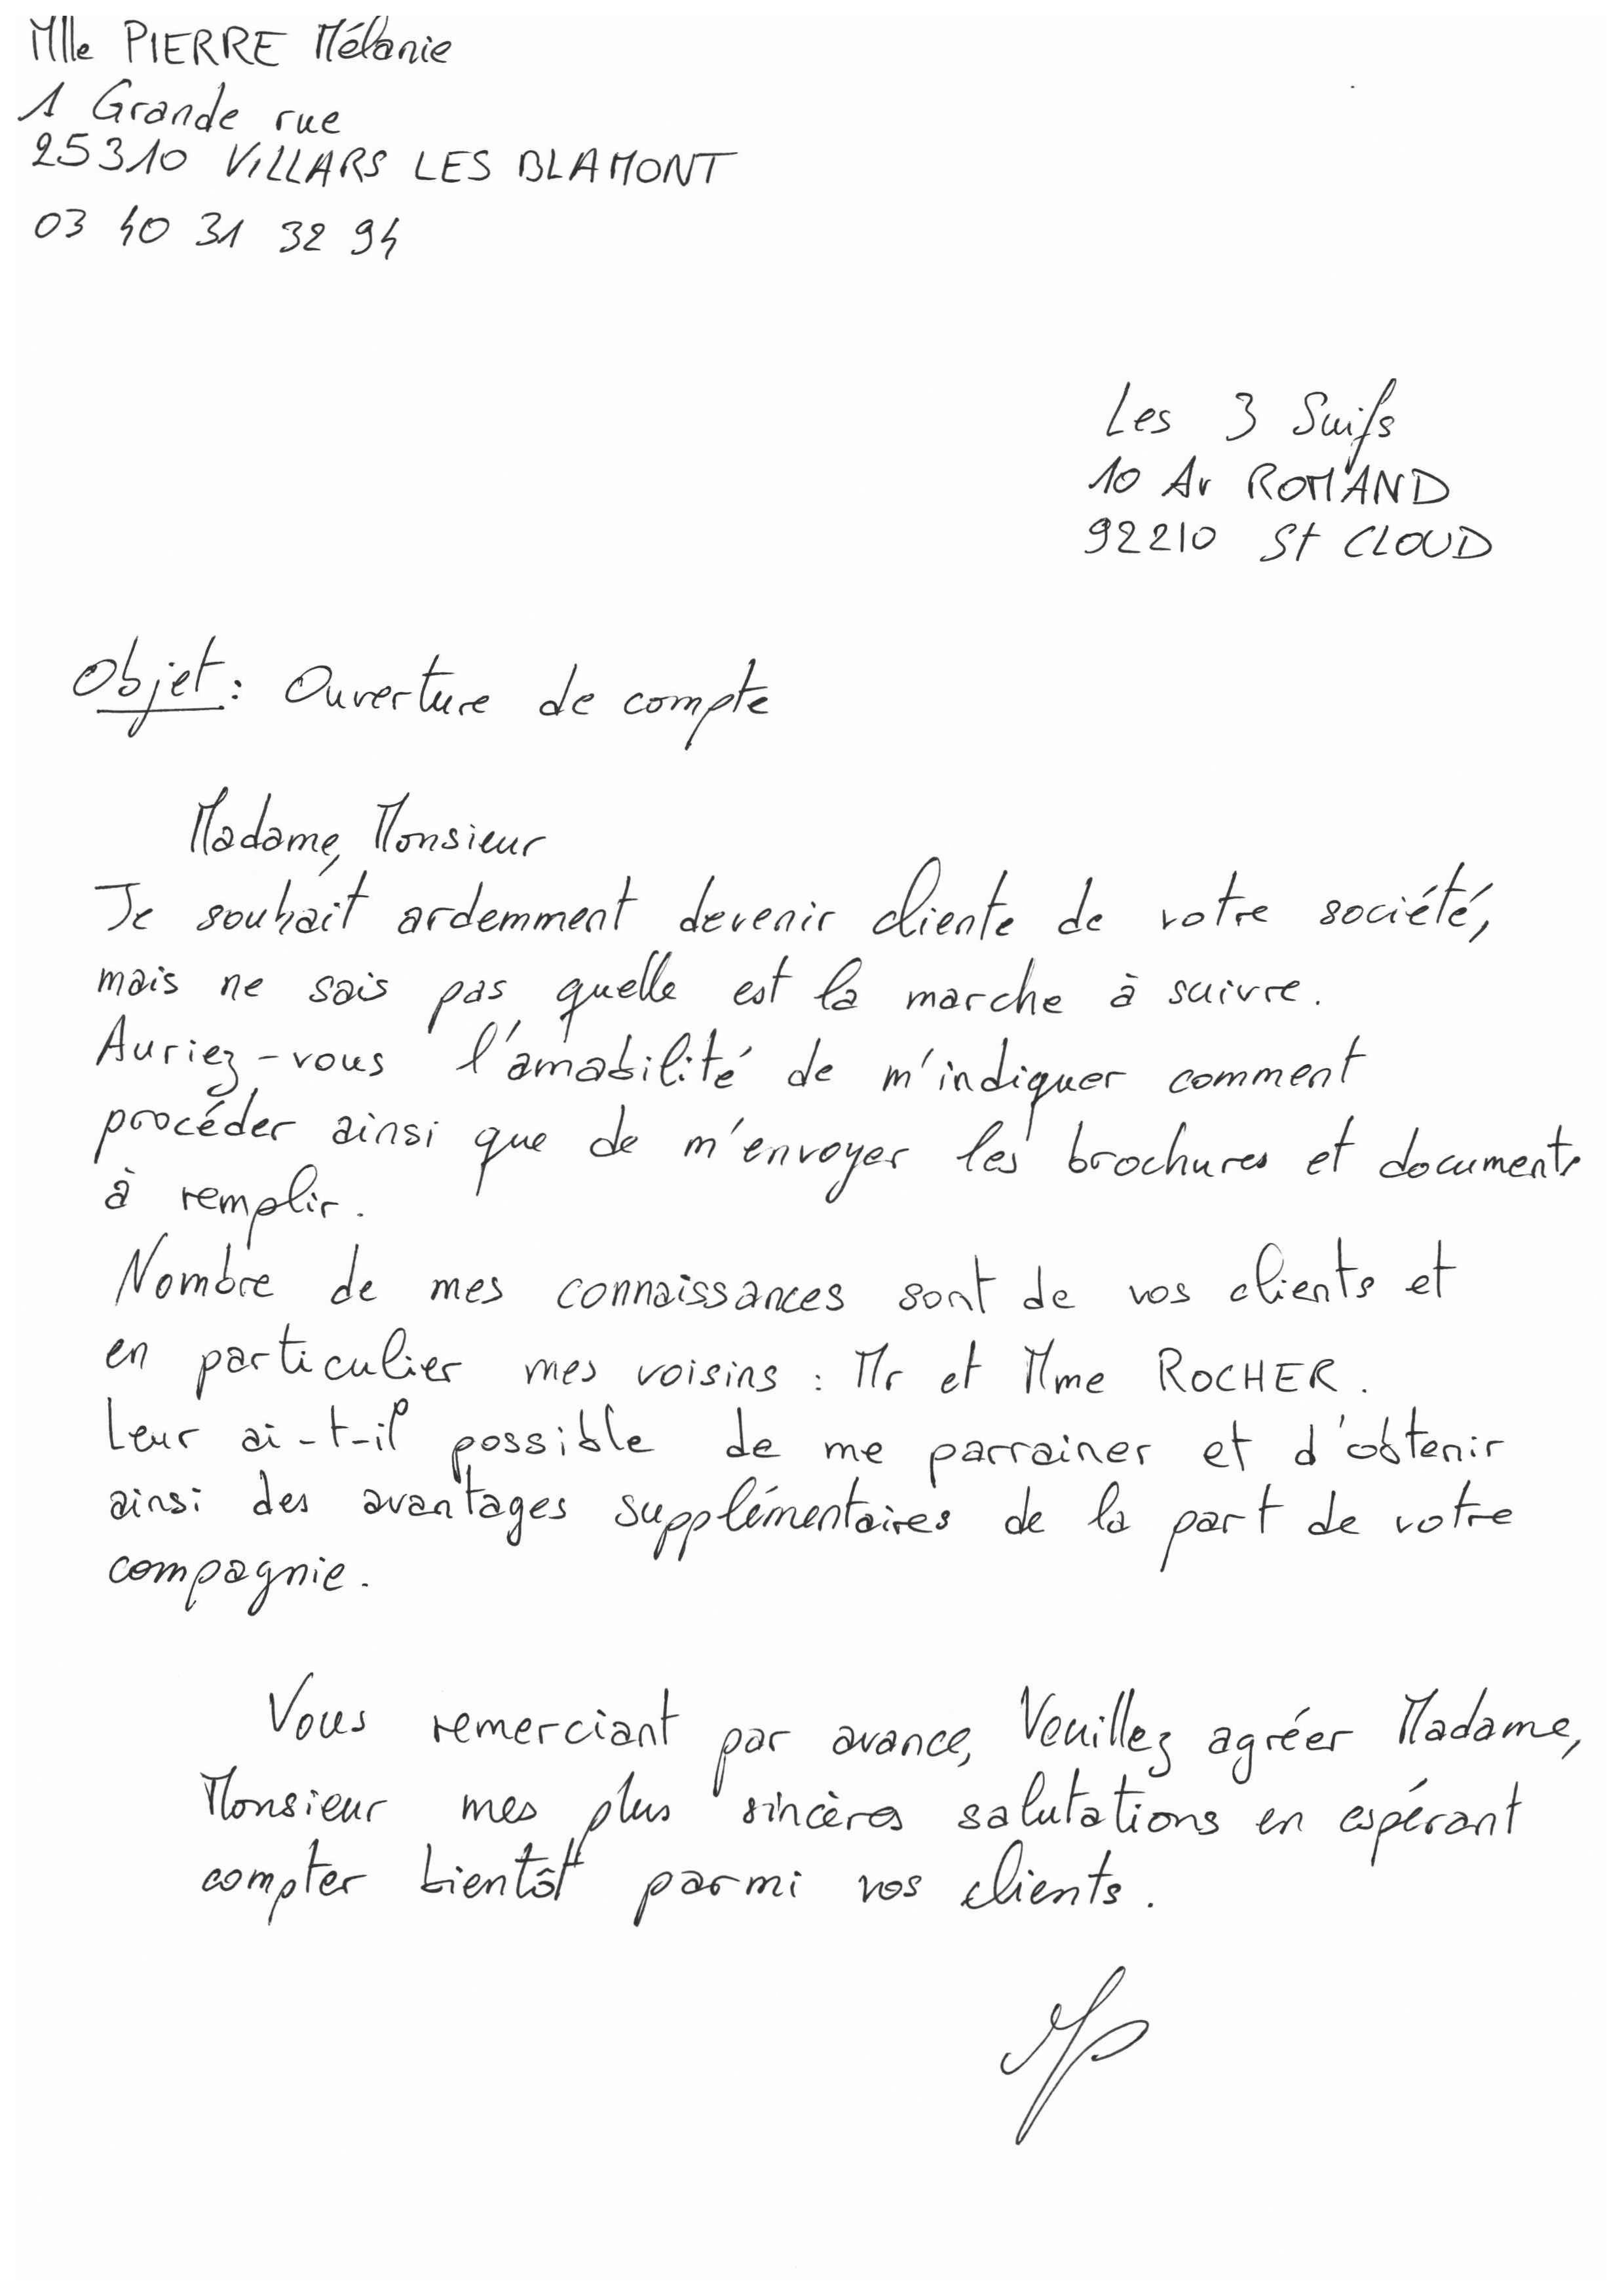 Mlle PIERRE Mélanie
1 Grande rue
25310 VILLARS LES BLAMONT
03 40 31 32 94
Les 3 Suifs
10 Av ROMAND
92210 St CLOUD
Objet : Ouverture de compte
Madame, Monsieur
Je souhait ardemment devenir cliente de votre société,
mais ne sais pas quelle est la marche à suivre.
Auriez-vous l'amabilité de m'indiquer comment
procéder ainsi que de m'envoyer les brochures et documents
à remplir.
Nombre de mes connaissances sont de vos clients et
en particulier mes voisins : Mr et Mme ROCHER.
Leur ai-t-il possible de me parrainer et d'obtenir
ainsi des avantages supplémentaires de la part de votre
compagnie.
Vous remerciant par avance, Veuillez agréer Madame,
Monsieur mes plus sincères salutations en espérant
compter bientôt parmi vos clients.
MP